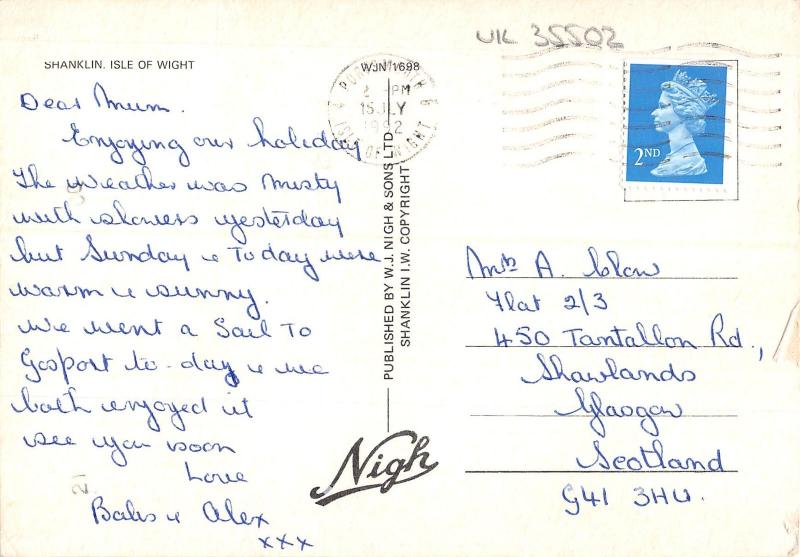 UK 35502
SHANKLIN. ISLE OF WIGHT
WJN 1698
PORTSMOUTH &
ISLE OF WIGHT
PM
15 JLY
2ND
Dear Mum.
Enjoying our holiday
The weather was misty
with showers yesterday
but Sunday & Today were
warm & sunny.
We went a Sail To
Gosport to-day & we
both enjoyed it
see you soon
Love
Babs & Alex
xxx
PUBLISHED BY W.J. NIGH & SONS LTD.
SHANKLIN I.W. COPYRIGHT
Nigh
Mrs A.
Flat 2/3
450 Tantallon Rd,
Shawlands
Glasgow
Scotland
G41 3HU.